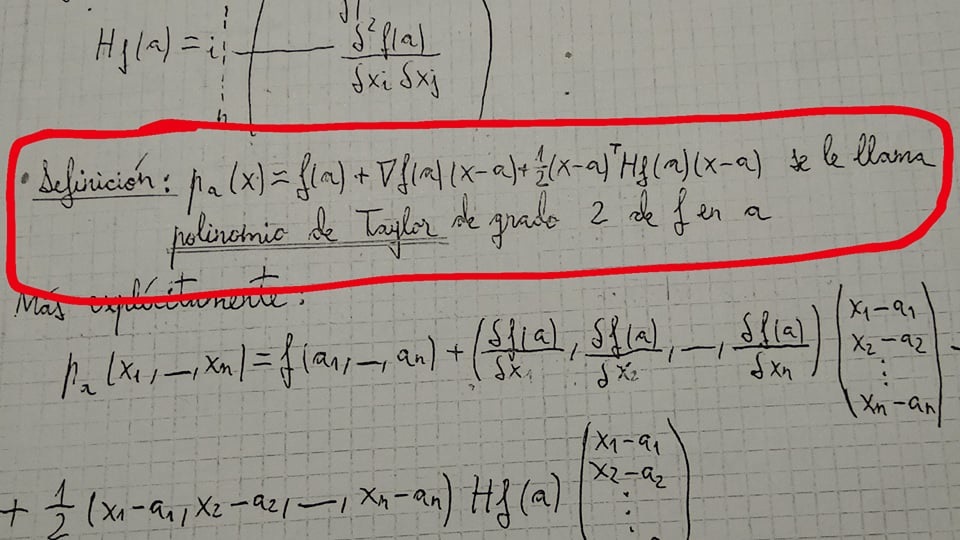 Hf(a) = i ( δ²f(a) / δxi δxj
• Definición: pa(x) = f(a) + ∇f(a)(x-a) + 1/2 (x-a)ᵀ Hf(a)(x-a) se le llama
polinomio de Taylor de grado 2 de f en a
Más explícitamente:
pa(x1, —, xn) = f(a1, —, an) + (δf(a)/δx1, δf(a)/δx2, —, δf(a)/δxn) (x1-a1 x2-a2 ⋮ xn-an)
+ 1/2 (x1-a1, x2-a2, —, xn-an) Hf(a) (x1-a1 x2-a2 ⋮